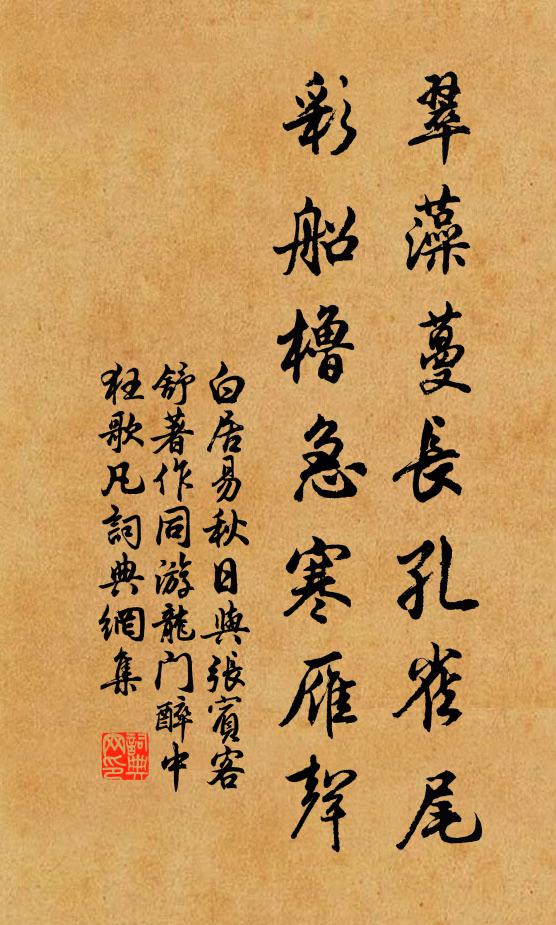 翠藻蔓長孔雀尾
彩船櫓急寒雁聲
白居易秋日與張賓客
舒著作同游龍門醉中
狂歌凡詞典網集
詞典網印